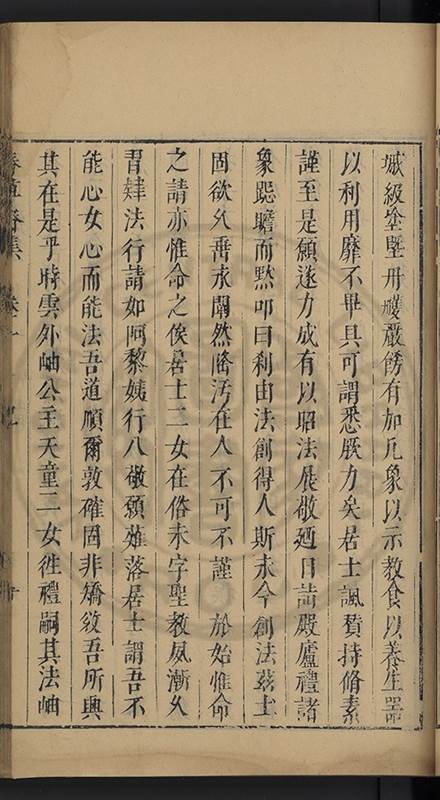 墄級塗塈丹雘嚴餙有加凡象以示教食以養生器
以利用靡不畢具可謂悉厥力矣居士諷賛持脩素
謹至是願遂力成有以昭法展敬廼日詣殿廬禮諸
象跽瞻而黙叩曰利由法創得人斯永今創法茲土
固欲乆垂永闡然隆汚在人不可不謹於始惟命
之請亦惟命之俟居士二女在俗未字聖教夙漸乆
習肄法行請如阿黎姨行八敬願薙落居士謂吾不
能心女心而能法吾道順爾敦確固非矯敓吾所與
其在是乎時雲外岫公主天童二女徃禮嗣其法岫